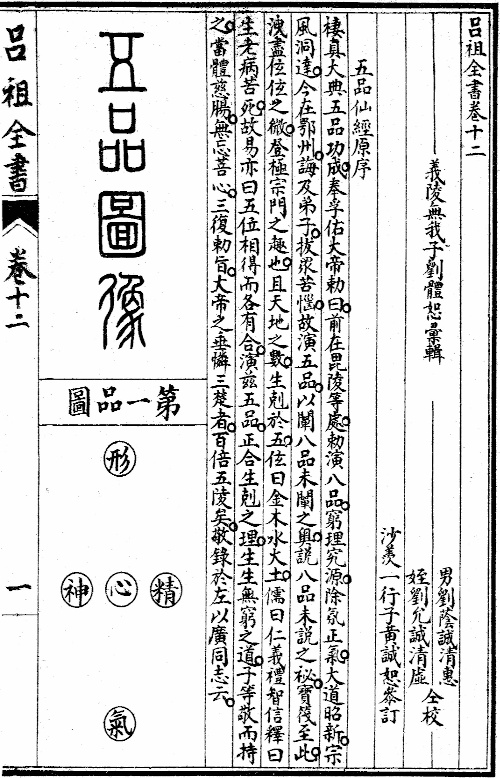 呂祖全書卷十二
義陵無我子劉體恕彙輯
男劉蔭誠清惠
姪劉允誠清虛
仝校
沙羨一行子黃誠恕參訂
五品仙經原序
棲真大典五品功成奉孚佑大帝勅曰前在毘陵等處勅演八品窮理究源除氛正氣大道昭新宗
風洞達今在鄂州誨及弟子拔眾苦惱故演五品以闡八品未闡之奧說八品未說之祕寶筏至此
洩盡位位之微登極宗門之趣也且天地之數生剋於五位曰金木水火土儒曰仁義禮智信釋曰
生老病苦死故易亦曰五位相得而各有合演茲五品正合生剋之理生生無窮之道子等敬而持
之當體慈腸無忘菩心三復勅旨大帝之垂憐三楚者百倍五陵矣敬錄於左以廣同志云
五品圖像
第一品圖
形
精
心
神
氣
呂祖全書
卷十二
一